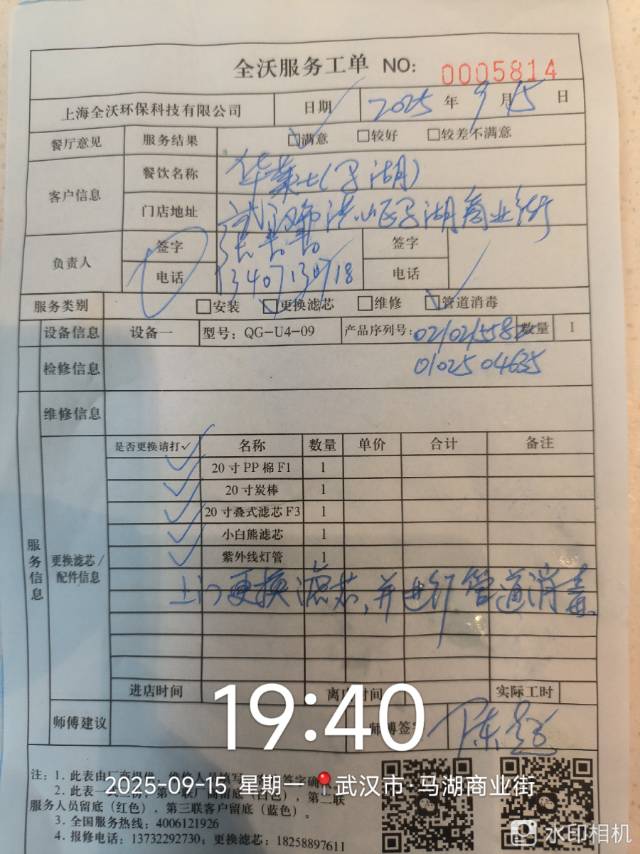 全沃服务工单 NO: 0005814
上海全沃环保科技有限公司 日期 2025 年 9 月 15 日
餐厅意见 服务结果 □满意 □较好 □较差不满意
客户信息 餐饮名称 华莱士(马湖)
门店地址 武汉市洪山区马湖商业街
负责人 签字 签字
电话 电话
服务类别 □安装 □更换滤芯 □维修 □管道消毒
设备信息 设备一 型号: QG-U4-09 产品序列号: 数量 1
0102504635
检修信息
维修信息
是否更换请打✓ 名称 数量 单价 合计 备注
✓ 20寸PP棉F1 1
✓ 20寸炭棒 1
✓ 20寸叠式滤芯F3 1
✓ 小白熊滤芯 1
✓ 紫外线灯管 1
服务信息 更换滤芯/配件信息
上门更换滤芯,并进行管道消毒
进店时间 离店时间 实际工时
师傅建议 师傅签字
19:40
2025-09-15 星期一 武汉市·马湖商业街
注: 1. 此表由
2. 此表一 第二联
服务人员留底(红色), 第三联客户留底(蓝色)。
3. 全国服务热线: 4006121926
4. 报修电话: 13732292730; 更换滤芯: 18258897611
水印相机